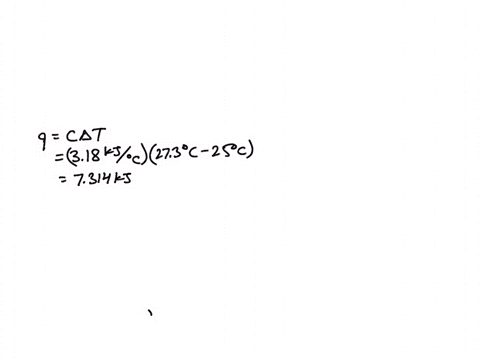 q = CΔT
= (3.18 kJ/°C)(27.3°C - 25°C)
= 7.314 kJ